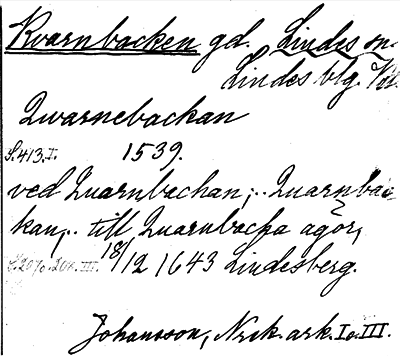 Kvarnbacken gd. Lindes sn.
Lindes blg. Vstm.
Qwarnebackan
S. 413. I. 1539.
ved Quarnbachan, .. Quarnbac-
kan, .. till Quarnbacka ägor,
18/12 1643 Lindesberg.
Johansson, Nrk. ark. I o. III.